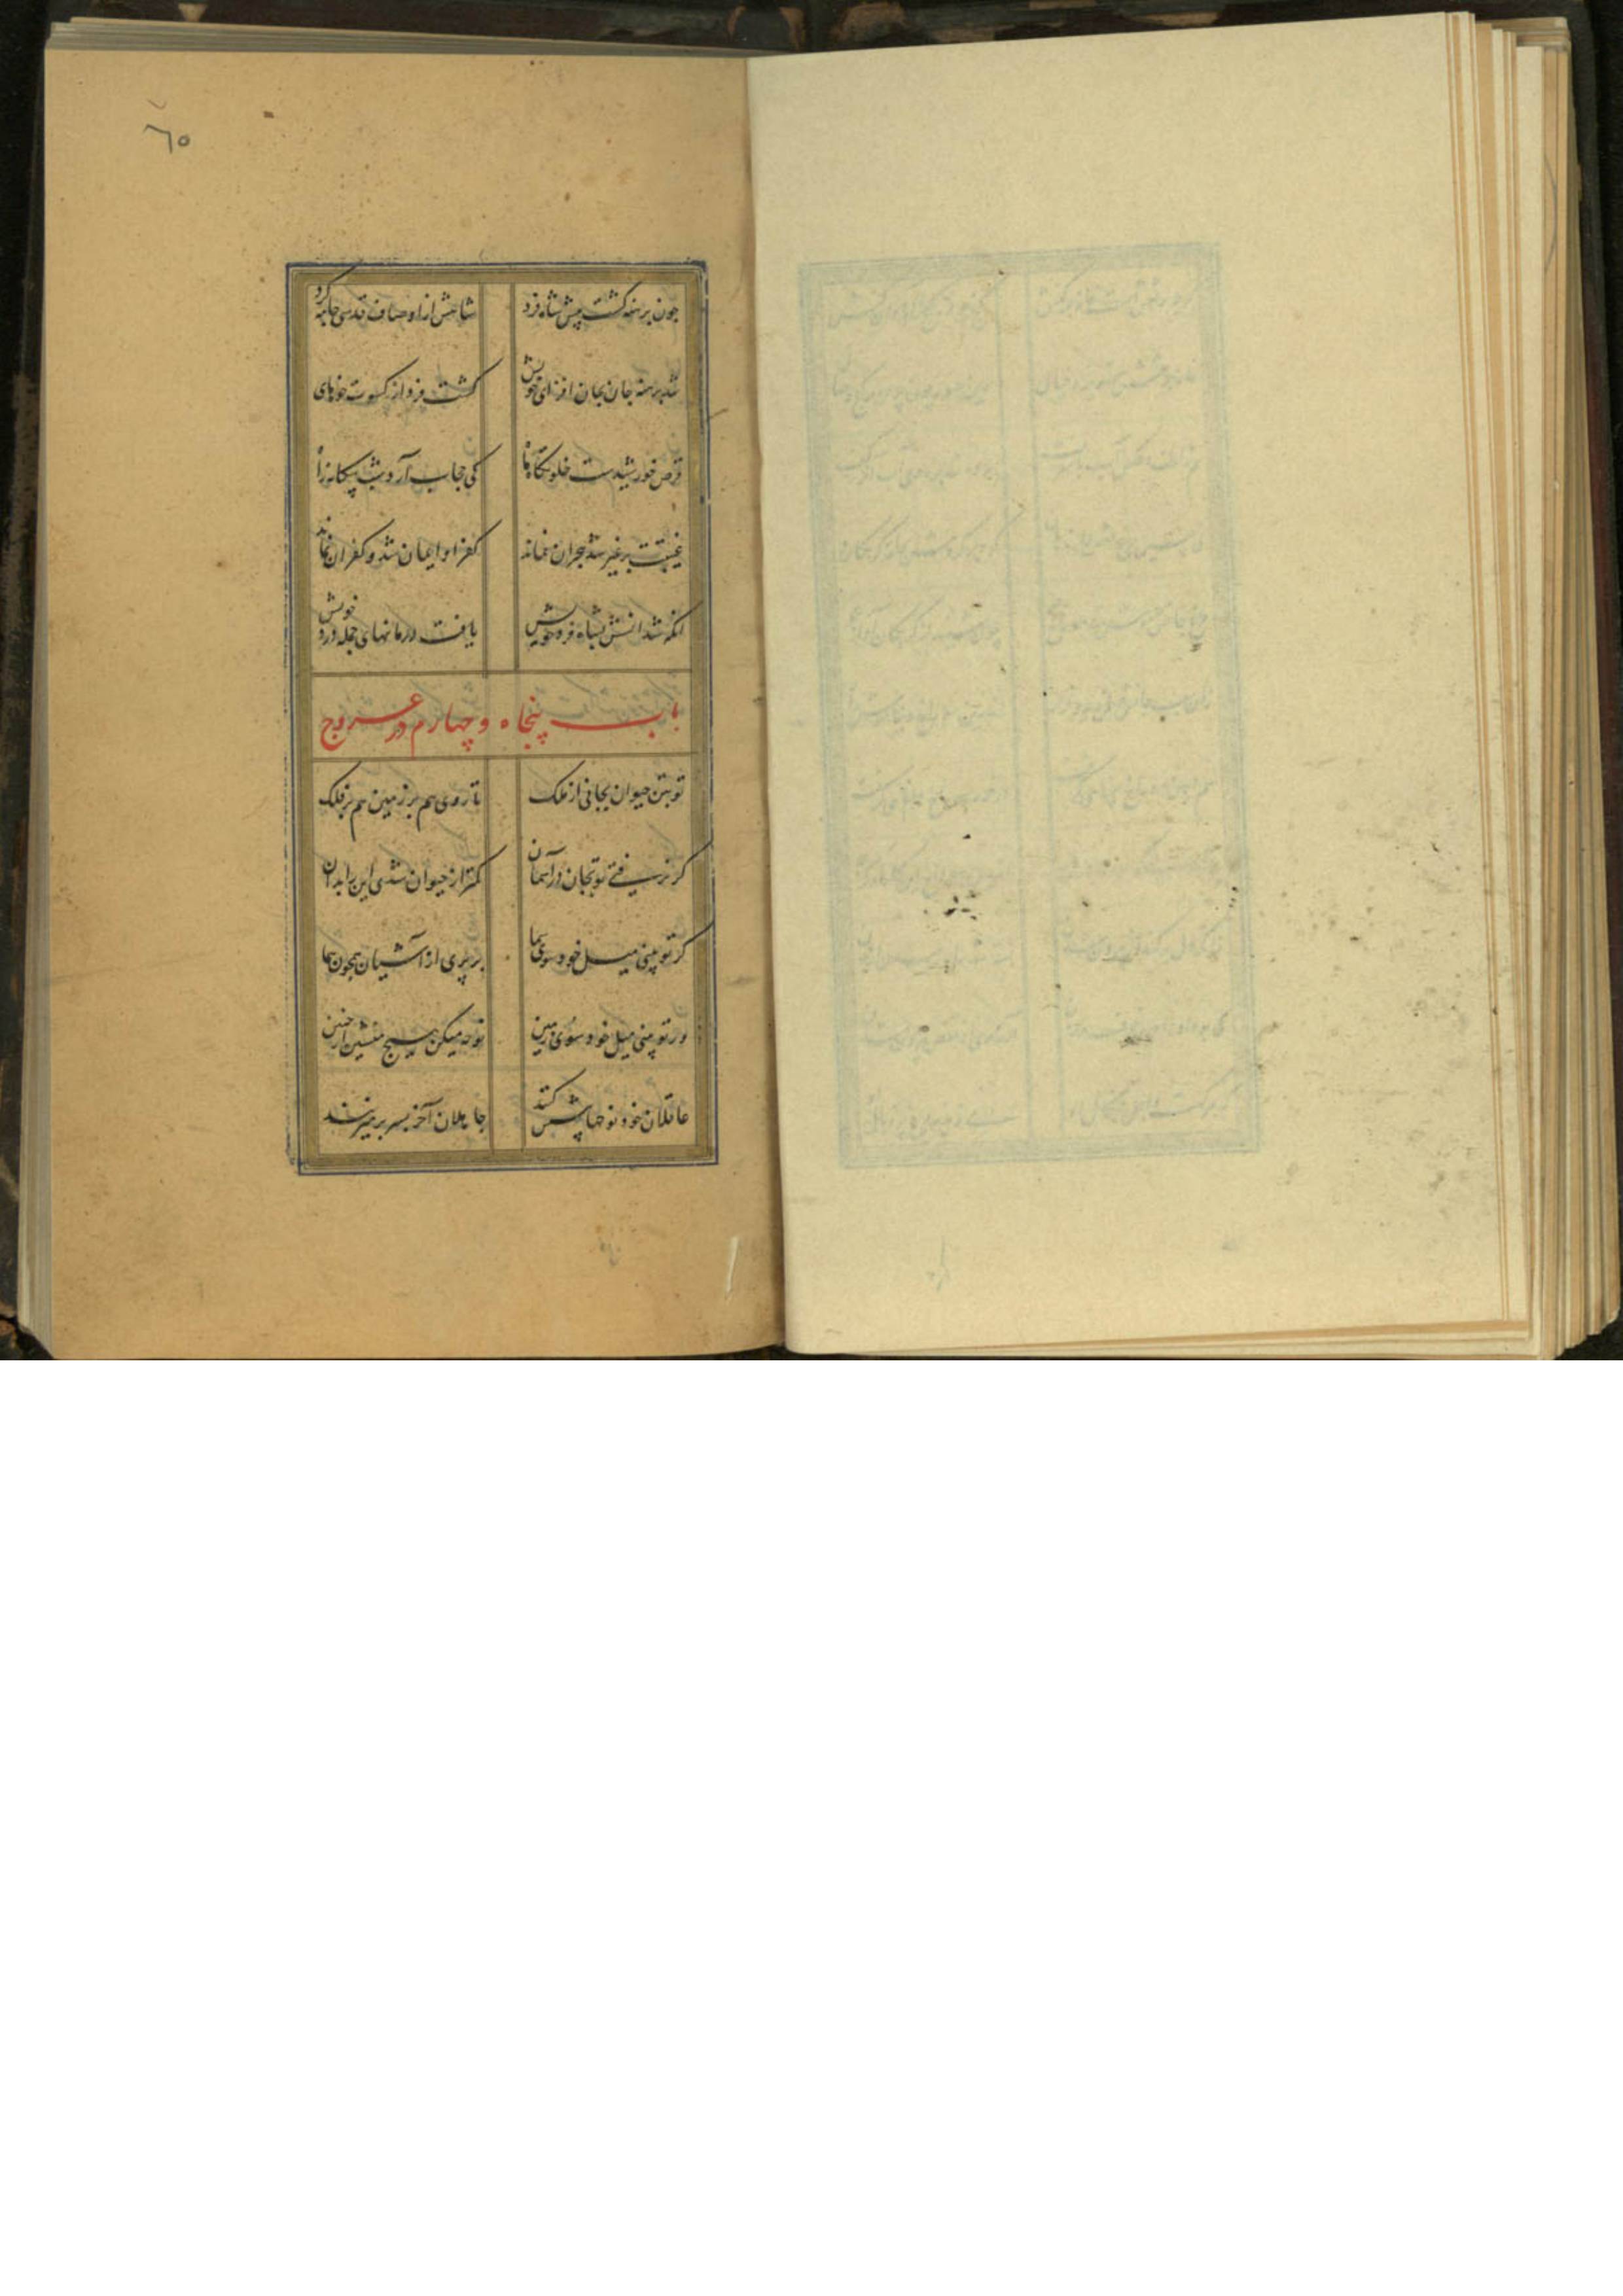 ٦٥
چون برهنه گشت پیش شاه فرد شاهش از اوصاف قدسی جامه کرد
شد برهنه جان بجان افزای خویش گشت فرد از کسوت خوهای خویش
قرص خورشیدست خلوتگاه ما کی حجاب آرد شب بیگانه را
غیبت بر غیر شد هجران نماند کفر او ایمان شد و کفران نماند
انکه شد انسش بشاه فرد خویش یافت درمانهای جمله درد خویش
باب پنجاه و چهارم در عروج
تو بتن حیوان بجانی از ملک تا روی هم بر زمین هم بر فلک
گر نرفتی تو بجان در آسمان کمتر از حیوان شدی این را بدان
گر تو بینی میل خود سوی سما بر پری از آشیان همچون هما
ور تو بینی میل خود سوی زمین نوحه میکن هیچ منشین از حنین
عاقلان خود نوحها پیش کنند جاهلان آخر بسر بر میزنند